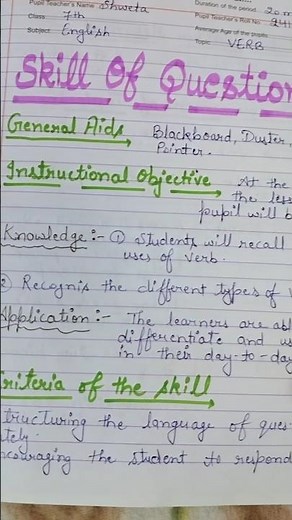 Pupil Teacher's Name Shweta
Duration of the period 20 m
Class 7th
Pupil Teacher's Roll No.
Subject English
Average Age of the pupils
Topic VERB
Skill Of Question
General Aids Blackboard, Duster,
Pointer.
Instructional Objective At the
the less
pupil will b
Knowledge :- ① Students will recall
uses of verb.
② Recognis the different types of v
Application :- The learners are abl
differentiate and us
in their day-to-day
riteria of the skill
tructuring the language of ques
ately.
ncouraging the student to respond